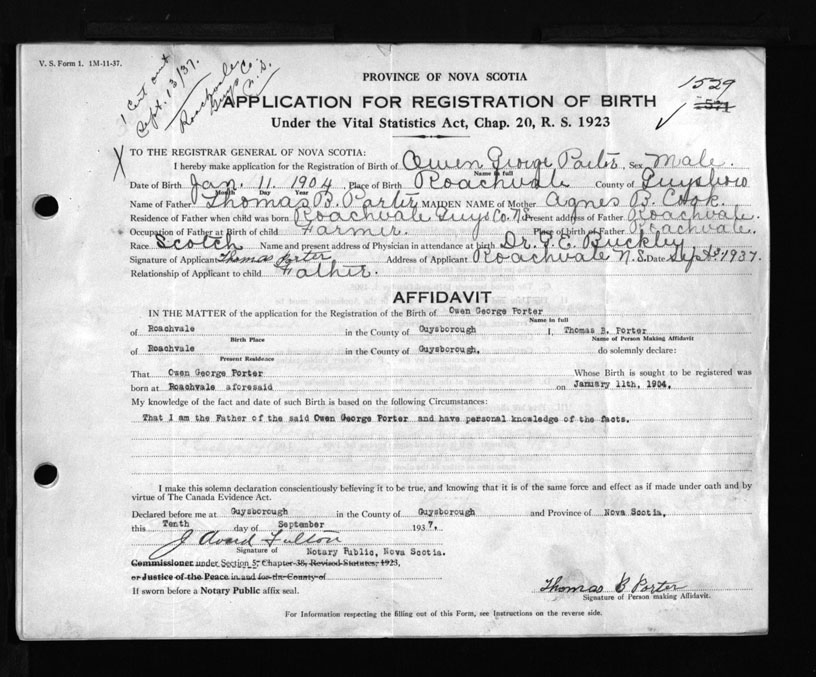 V. S. Form 1. 1M-11-37.
1 Cert out
Sept. 13/37.
Roachvale
Guys Co.
N.S.
PROVINCE OF NOVA SCOTIA
1529
571
APPLICATION FOR REGISTRATION OF BIRTH
Under the Vital Statistics Act, Chap. 20, R. S. 1923
X TO THE REGISTRAR GENERAL OF NOVA SCOTIA:
I hereby make application for the Registration of Birth of Owen George Porter, Sex Male.
Name in full
Date of Birth Jan. 11. 1904, Place of Birth Roachvale County of Guysboro
Month Day Year
Name of Father Thomas B. Porter MAIDEN NAME of Mother Agnes B. Cook.
Residence of Father when child was born Roachvale Guys Co. N.S. Present address of Father Roachvale.
Occupation of Father at Birth of child Farmer. Place of birth of Father Roachvale.
Race Scotch Name and present address of Physician in attendance at birth Dr. G. E. Buckley
Signature of Applicant Thomas Porter Address of Applicant Roachvale N.S. Date Sept 1937.
Relationship of Applicant to child Father.
AFFIDAVIT
IN THE MATTER of the application for the Registration of the Birth of Owen George Porter
Name in full
of Roachvale in the County of Guysborough I, Thomas B. Porter
Birth Place Name of Person Making Affidavit
of Roachvale in the County of Guysborough, do solemnly declare:
Present Residence
That Owen George Porter Whose Birth is sought to be registered was
born at Roachvale aforesaid on January 11th, 1904,
My knowledge of the fact and date of such Birth is based on the following Circumstances:
That I am the Father of the said Owen George Porter and have personal knowledge of the facts.
I make this solemn declaration conscientiously believing it to be true, and knowing that it is of the same force and effect as if made under oath and by
virtue of The Canada Evidence Act.
Declared before me at Guysborough in the County of Guysborough and Province of Nova Scotia,
this Tenth day of September 1937.
J Avard Fulton
Signature of Notary Public, Nova Scotia.
Commissioner under Section 5, Chapter 38, Revised Statutes, 1923,
or Justice of the Peace in and for the County of
If sworn before a Notary Public affix seal.
Thomas B Porter
Signature of Person making Affidavit.
For Information respecting the filling out of this Form, see Instructions on the reverse side.